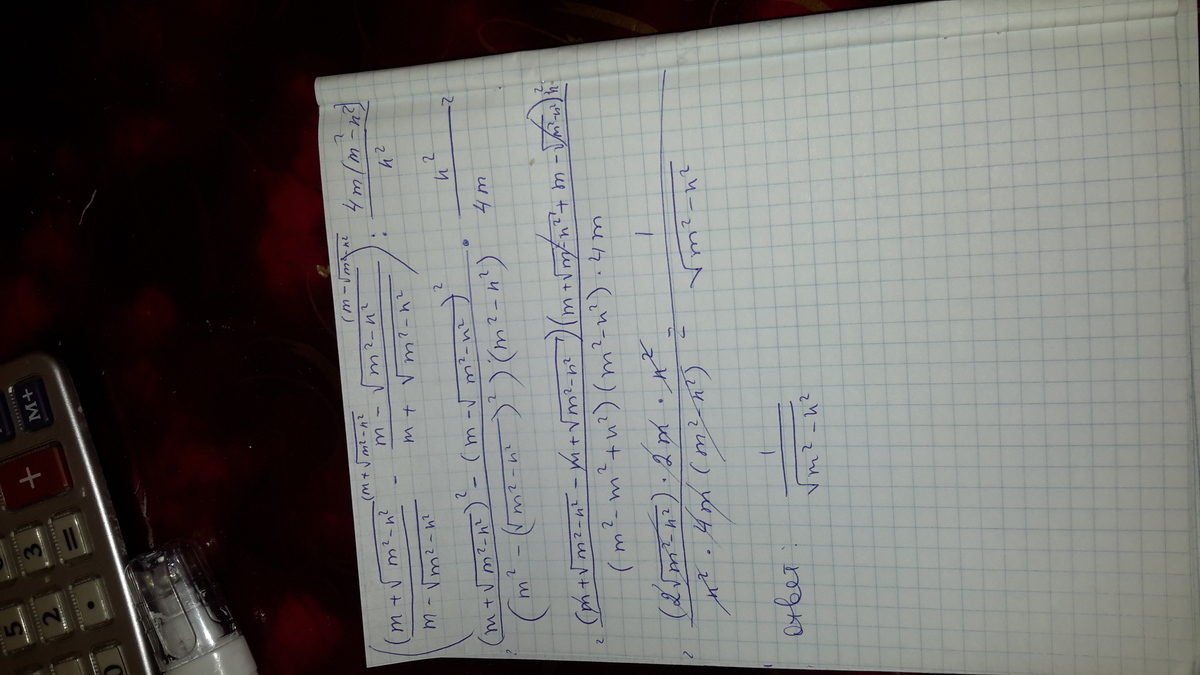 ( (m + √(m² - n²))/(m - √(m² - n²)) ^(m + √(m² - n²)) - (m - √(m² - n²))/(m + √(m² - n²)) ^(m - √(m² - n²)) ) : 4m(m² - n²)/n² =
= ((m + √(m² - n²))² - (m - √(m² - n²))²)/((m² - (√(m² - n²))²)·(m² - n²)) · n²/4m =
= (m + √(m² - n²) - m + √(m² - n²))(m + √(m² - n²) + m - √(m² - n²)) n²/(m² - m² + n²)(m² - n²) · 4m =
= (2√(m² - n²)) · 2m · n²/n² · 4m (m² - n²) = 1/√(m² - n²)
Ответ: 1/√(m² - n²)
5
2
3
0
.
=
+
M+